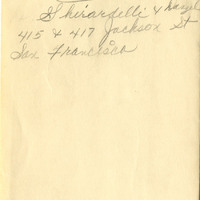 Ghirardelli &
415 & 417 Jackson St
San Francisco